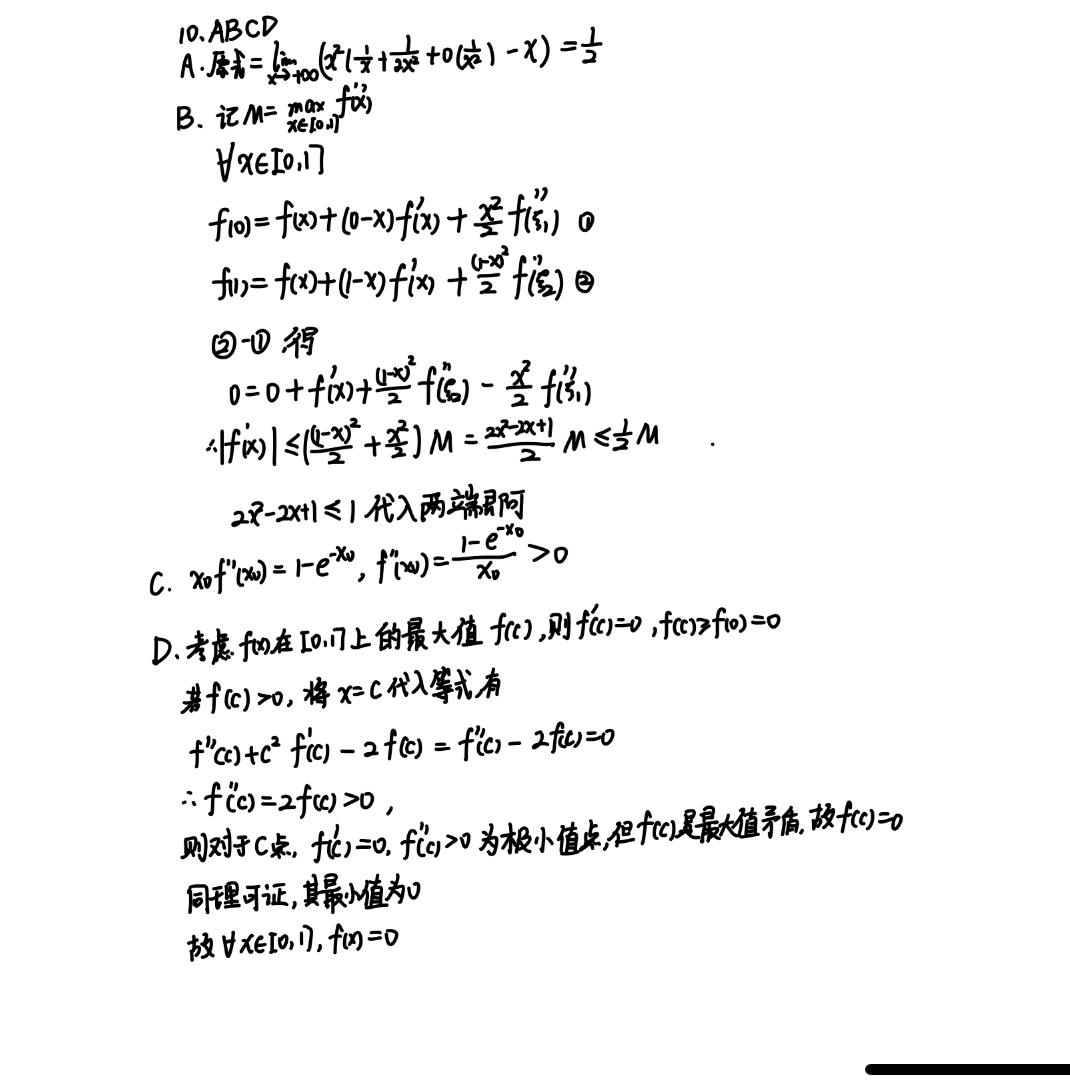 10、ABCD
A.原式=lim_{x→+∞}(x²(1/x+1/2x²+o(1/x²))-x)=1/2
B、记M=max_{x∈[0,1]}f''(x)
∀x∈[0,1]
f(0)=f(x)+(0-x)f'(x)+x²/2 f''(ξ₁) ①
f(1)=f(x)+(1-x)f'(x)+(1-x)²/2 f''(ξ₂) ②
②-①,得
0=0+f'(x)+(1-x)²/2 f''(ξ₂)-x²/2 f''(ξ₁)
∴|f'(x)|≤((1-x)²/2+x²/2)M=(2x²-2x+1)/2 M≤1/2 M
2x²-2x+1≤1 代入两端即可
C. x₀f''(x₀)=1-e^{-x₀}, f''(x₀)=(1-e^{-x₀})/x₀>0
D、考虑f(x)在[0,1]上的最大值f(c),则f'(c)=0,f(c)≥f(0)=0
若f(c)>0,将x=c代入等式,有
f''(c)+c²f'(c)-2f(c)=f''(c)-2f(c)=0
∴f''(c)=2f(c)>0,
则对于C点,f'(c)=0,f''(c)>0为极小值点,但f(c)是最大值矛盾,故f(c)=0
同理可证,其最小值为0
故∀x∈[0,1],f(x)=0